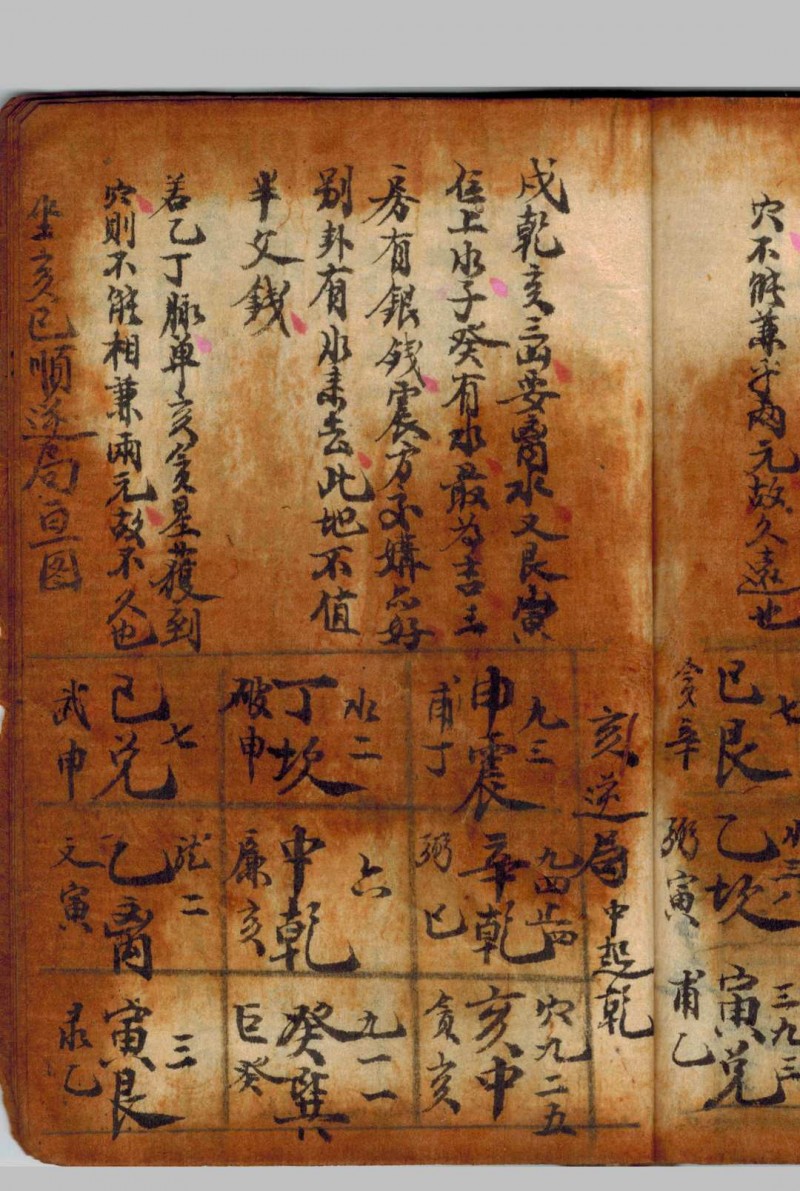 穴不能兼乎兩元故久遠也
七
巳艮
貪辛
水三八
乙坎
弼寅
三九三
寅兌
甫乙
戌乾亥三山要离水又艮寅
位上水子癸有水最為吉主
房有銀錢震方不媾
好
別卦有水來去此地不值
半文錢
若乙丁脉单亥貪星獲到
穴則不能相兼兩元故不久也
坐亥巳順逆局
图
亥逆局中起乾
九三
申震
甫丁
水二
丁坎
破申
七
巳兌
武申
九四
辛乾
弼巳
六
中乾
廉亥
二
乙离
文寅
穴九二五
亥中
貪亥
九一一
癸巽
巨癸
三
寅艮
彔乙